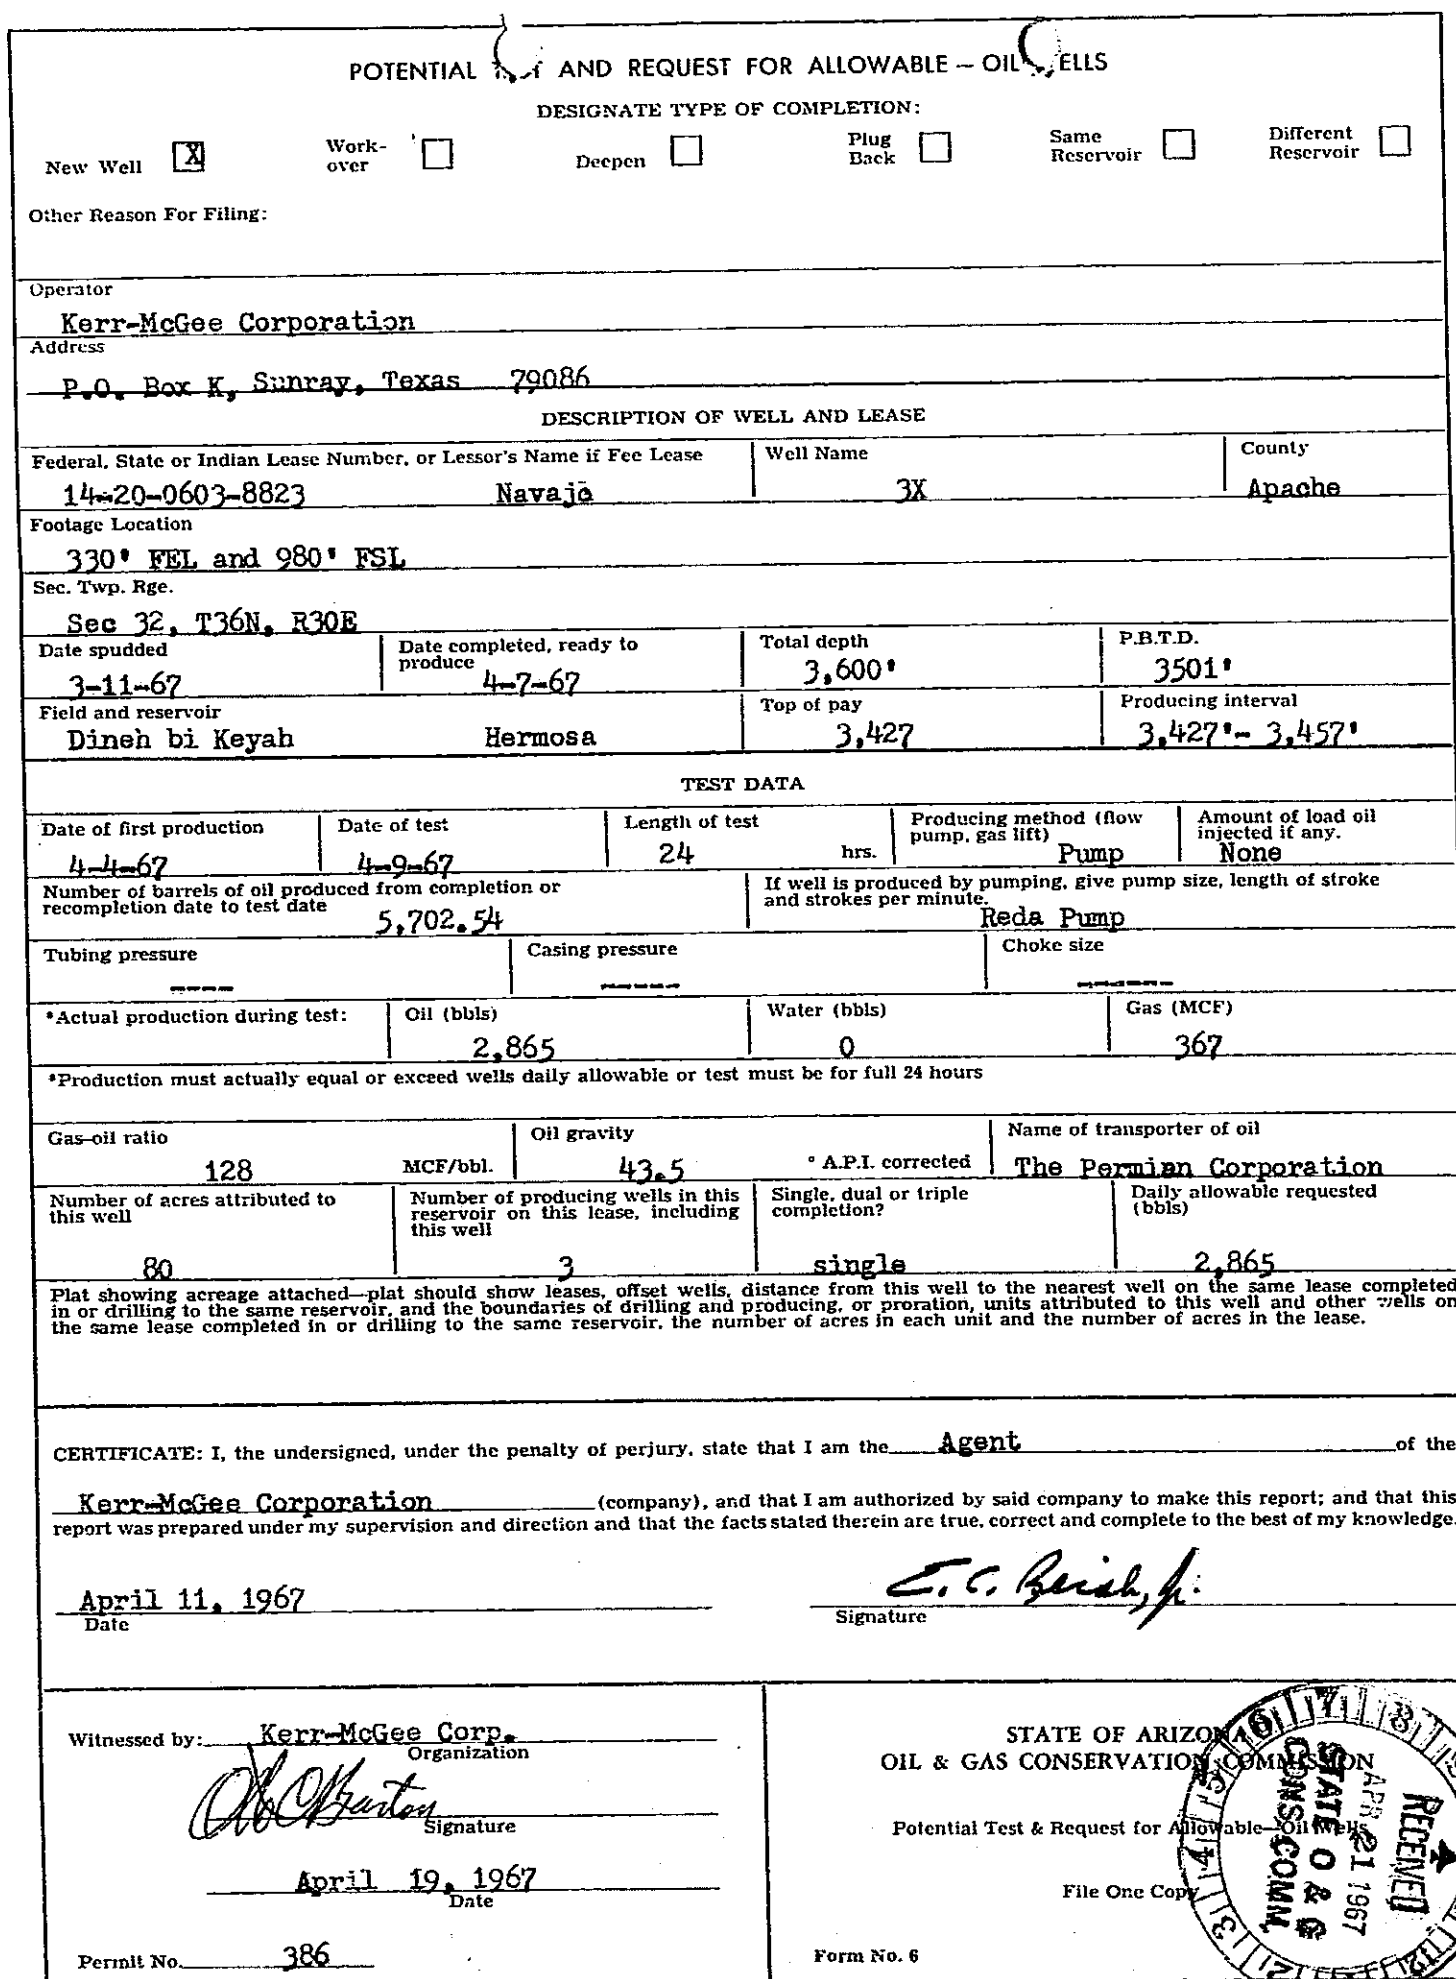 POTENTIAL AND REQUEST FOR ALLOWABLE — OIL ELLS
DESIGNATE TYPE OF COMPLETION:
New Well X Work-over Deepen Plug Back Same Reservoir Different Reservoir
Other Reason For Filing:
Operator
Kerr-McGee Corporation
Address
P.O. Box K, Sunray, Texas 79086
DESCRIPTION OF WELL AND LEASE
Federal, State or Indian Lease Number, or Lessor's Name if Fee Lease Well Name County
14-20-0603-8823 Navajo 3X Apache
Footage Location
330' FEL and 980' FSL
Sec. Twp. Rge.
Sec 32, T36N, R30E
Date spudded Date completed, ready to produce Total depth P.B.T.D.
3-11-67 4-7-67 3,600' 3501'
Field and reservoir Top of pay Producing interval
Dineh bi Keyah Hermosa 3,427 3,427'- 3,457'
TEST DATA
Date of first production Date of test Length of test Producing method (flow pump, gas lift) Amount of load oil injected if any.
4-4-67 4-9-67 24 hrs. Pump None
Number of barrels of oil produced from completion or recompletion date to test date If well is produced by pumping, give pump size, length of stroke and strokes per minute.
5,702.54 Reda Pump
Tubing pressure Casing pressure Choke size
---- ----- ------
*Actual production during test: Oil (bbls) Water (bbls) Gas (MCF)
2,865 0 367
*Production must actually equal or exceed wells daily allowable or test must be for full 24 hours
Gas-oil ratio Oil gravity Name of transporter of oil
128 MCF/bbl. 43.5 ° A.P.I. corrected The Permian Corporation
Number of acres attributed to this well Number of producing wells in this reservoir on this lease, including this well Single, dual or triple completion? Daily allowable requested (bbls)
80 3 single 2,865
Plat showing acreage attached—plat should show leases, offset wells, distance from this well to the nearest well on the same lease completed
in or drilling to the same reservoir, and the boundaries of drilling and producing, or proration, units attributed to this well and other wells on
the same lease completed in or drilling to the same reservoir, the number of acres in each unit and the number of acres in the lease.
CERTIFICATE: I, the undersigned, under the penalty of perjury, state that I am the Agent of the
Kerr-McGee Corporation (company), and that I am authorized by said company to make this report; and that this
report was prepared under my supervision and direction and that the facts stated therein are true, correct and complete to the best of my knowledge.
April 11, 1967 E. C.
Date Signature
Witnessed by: Kerr-McGee Corp.
Organization
Signature
April 19, 1967
Date
Permit No. 386
STATE OF ARIZONA
OIL & GAS CONSERVATION COMMISSION
Potential Test & Request for Allowable—Oil Wells
File One Copy
Form No. 6
RECEIVED
APR 21 1967
STATE O & G
CONS. COMM.